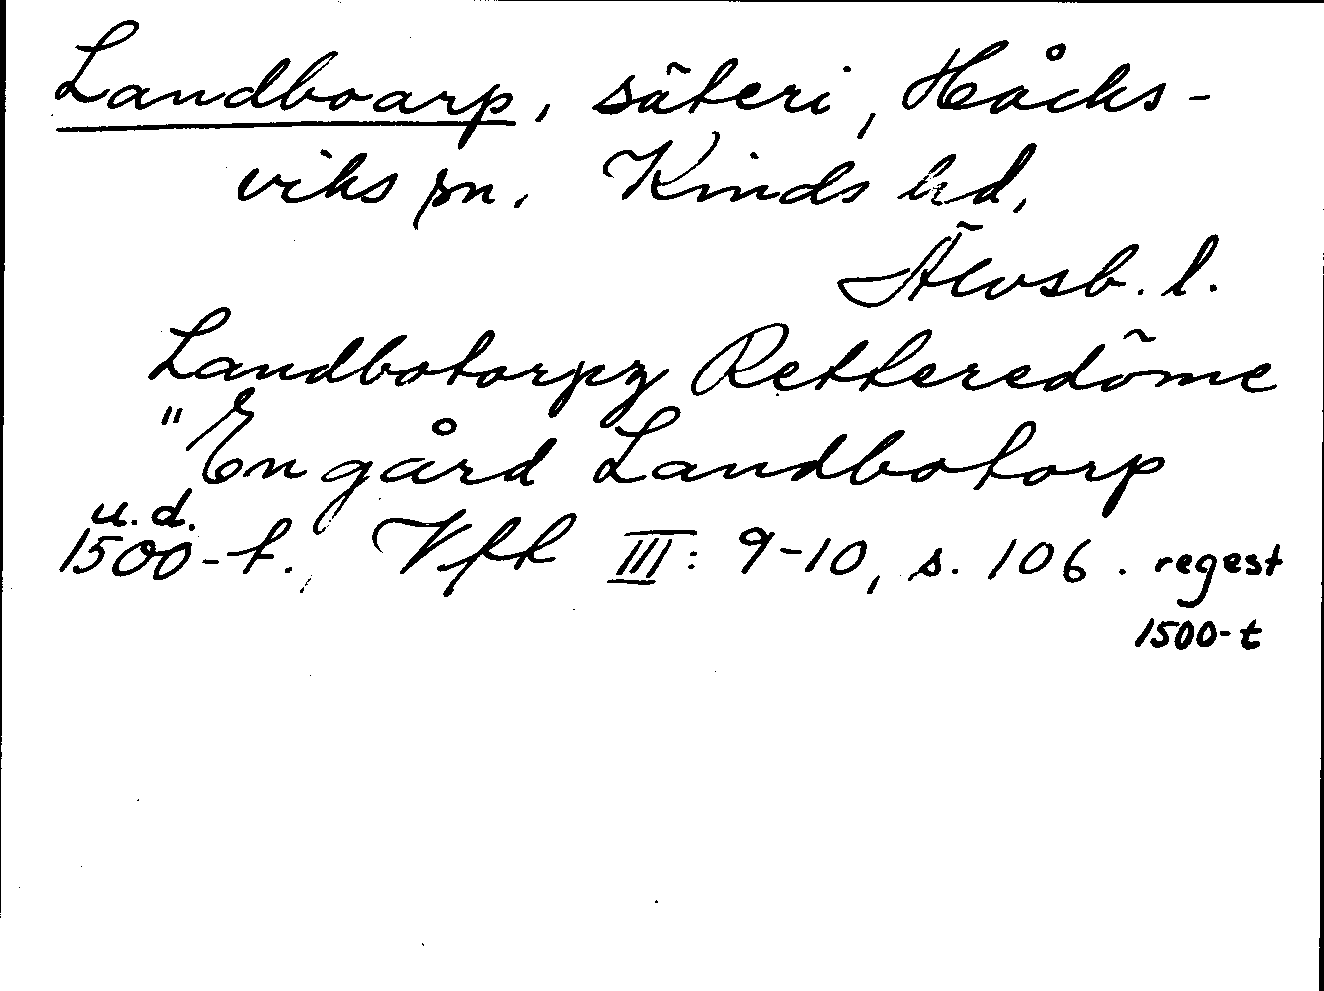 Landboarp, säteri, Håcks-
viks sn. Kinds hd,
Älvsb. l.
Landbotorpz Retteredöme
"En gård Landbotorp
u.d.
1500-t. Vft III: 9-10, s. 106. regest
1500-t